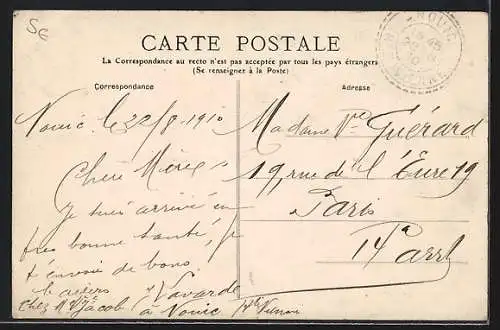 SE
NOUIC
CARTE POSTALE
La Correspondance au recto n'est pas acceptée par tous les pays étrangers
(Se renseigner à la Poste)
Correspondance
Nouic le 22/8 1910
Chère Mère
Je suis arrivé en
très bonne santé, je
t envoie de bons
baisers
Chez Mr Jacob
à Nouic
Hte Vienne
Adresse
Madame Vve Guérard
19, rue de l'Eure 19
Paris
14e Arrt